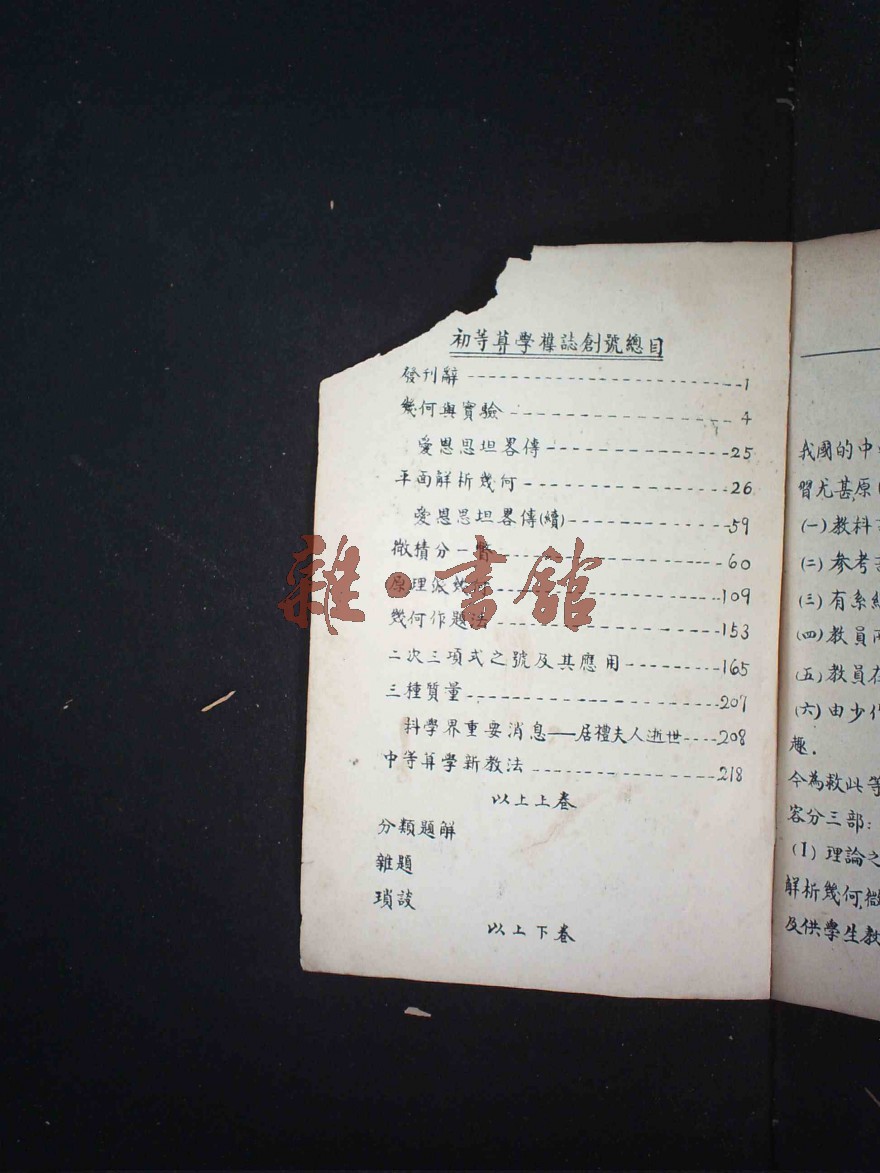 初等算學襍誌創號總目
發刊辭 1
幾何與實驗 4
愛恩思坦畧傳 25
平面解析幾何 26
愛恩思坦畧傳(續) 59
微積分一 60
原理 109
幾何作題法 153
二次三項式之號及其應用 165
三種質量 207
科學界重要消息——居禮夫人逝世 208
中等算學新教法 218
以上上卷
分類題解
雜題
瑣談
以上下卷
雜·書館
我國的中
習尤甚原
(一)教科
(二)參考
(三)有系
(四)教員
(五)教員在
(六)由少
趣.
今為救此等
容分三部:
(1)理論之
解析幾何,微
及供學生教